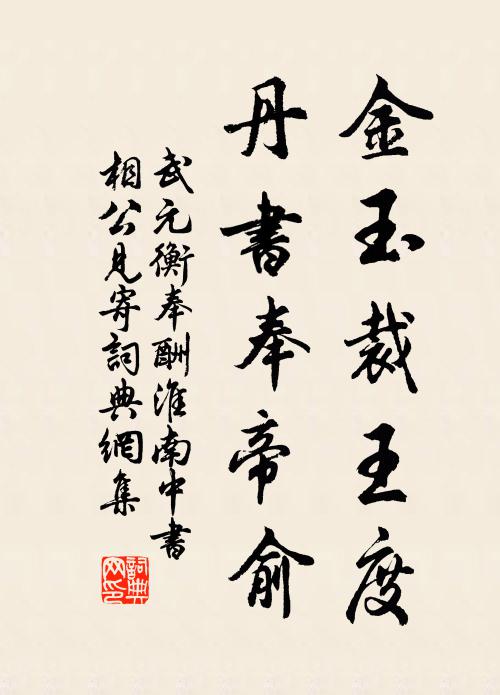 金玉裁王度
丹書奉帝俞
武元衡奉酬淮南中書
相公見寄詞典網集
詞典
网印